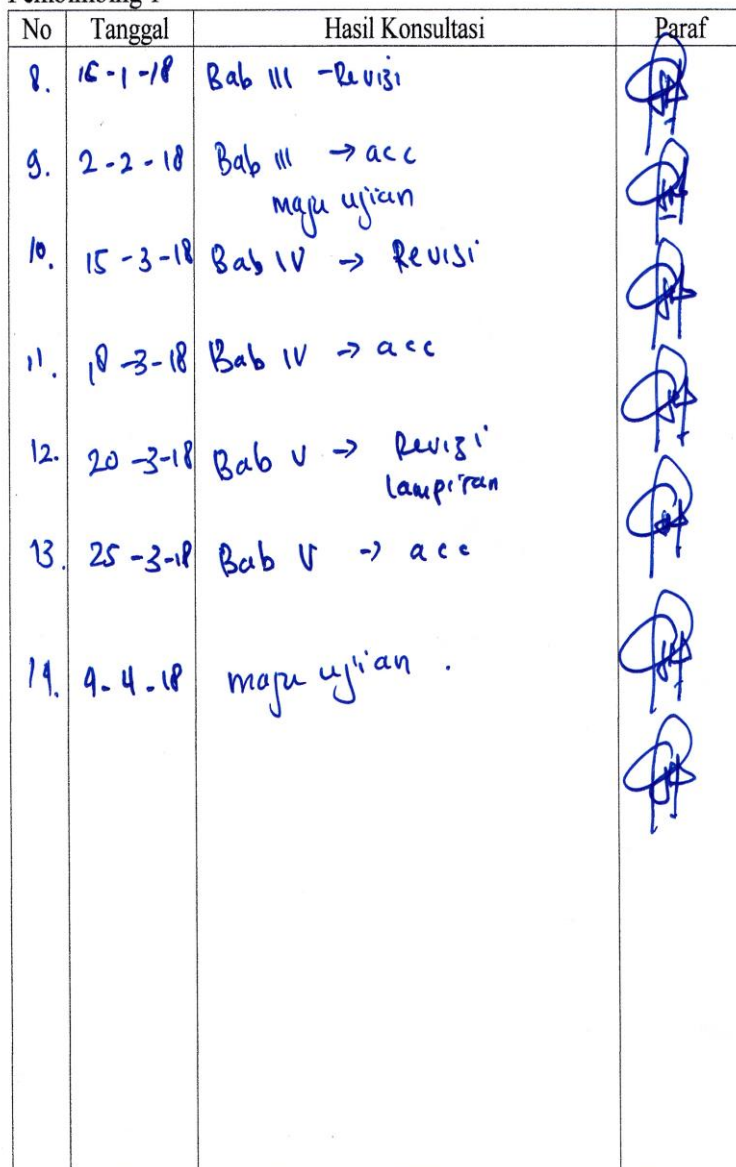 Pembimbing 1
No Tanggal Hasil Konsultasi Paraf
8. 16-1-18 Bab III - Revisi
9. 2-2-18 Bab III → acc
maju ujian
10. 15-3-18 Bab IV → Revisi
11. 18-3-18 Bab IV → acc
12. 20-3-18 Bab V → Revisi
lampiran
13. 25-3-18 Bab V → acc
14. 4-4-18 maju ujian.